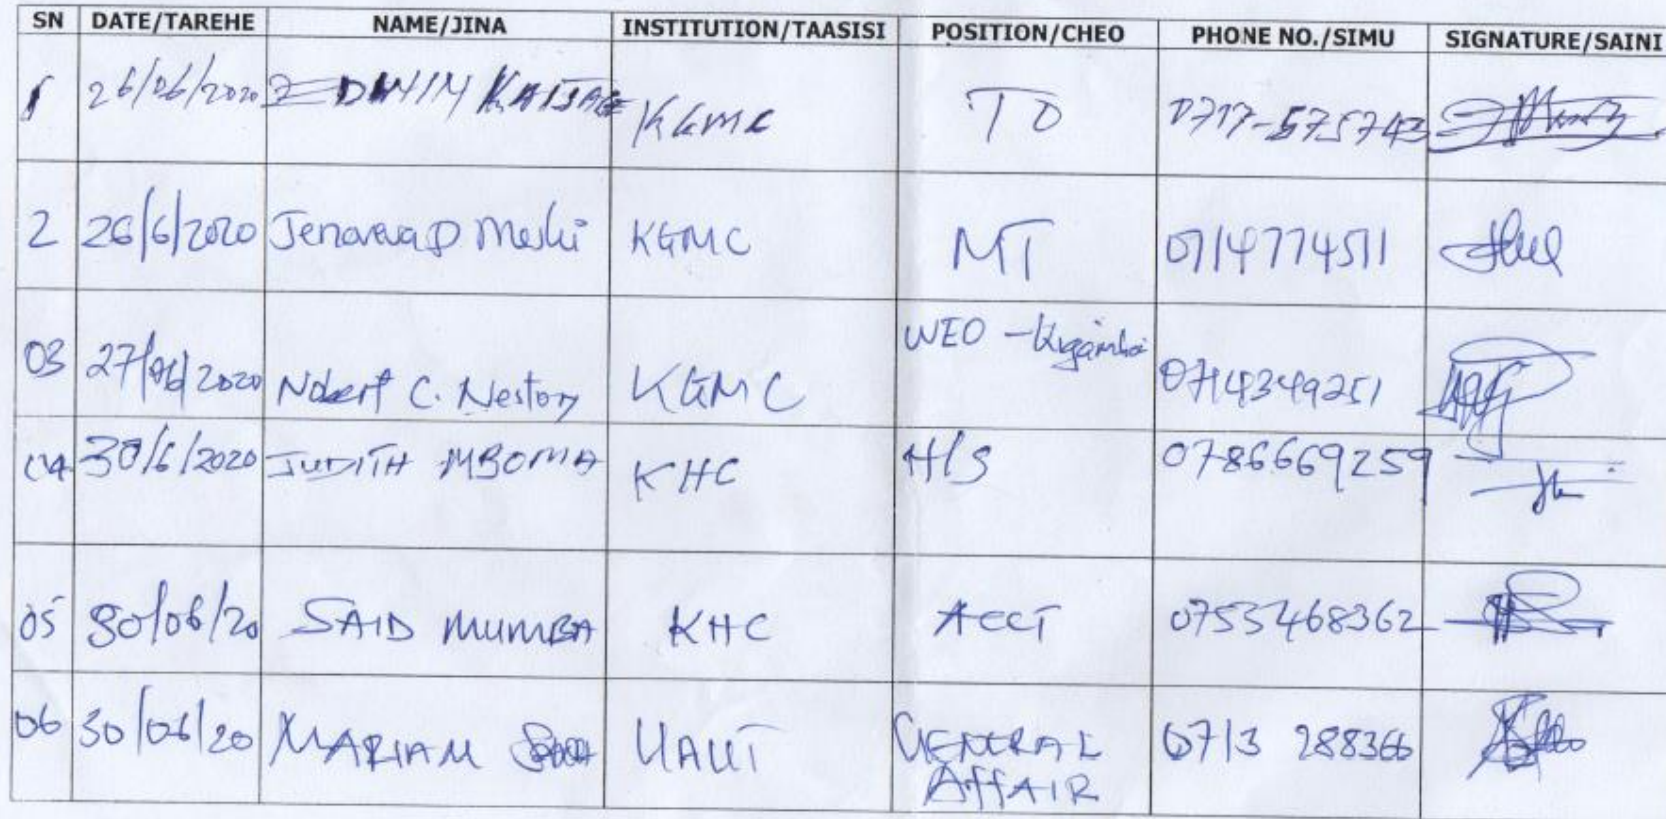 SN DATE/TAREHE NAME/JINA INSTITUTION/TAASISI POSITION/CHEO PHONE NO./SIMU SIGNATURE/SAINI
1 26/06/2020 EDWIN KAIJAGE KGMC TO 0717-575743
2 26/6/2020 Jenoveva D KGMC MT 0714774511
03 27/06/2020 Nobert C. Nestory KGMC WEO - Kigamboi 0714349251
04 30/6/2020 JUDITH MBOMA KHC H/S 0786669259
05 30/06/20 SAID MUMBA KHC ACCT 0753468362
06 30/06/20 MARIAM UAUT GENERAL 0713 288366
AFFAIR